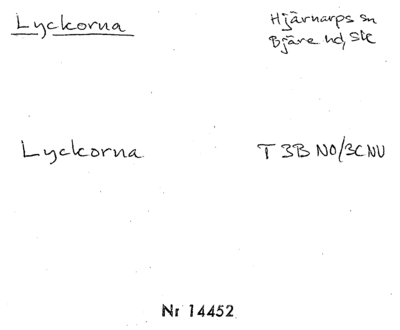 Lyckorna
Hjärnarps sn
Bjäre hd, Sk
Lyckorna
T 3B NO/3C NV
Nr 14452